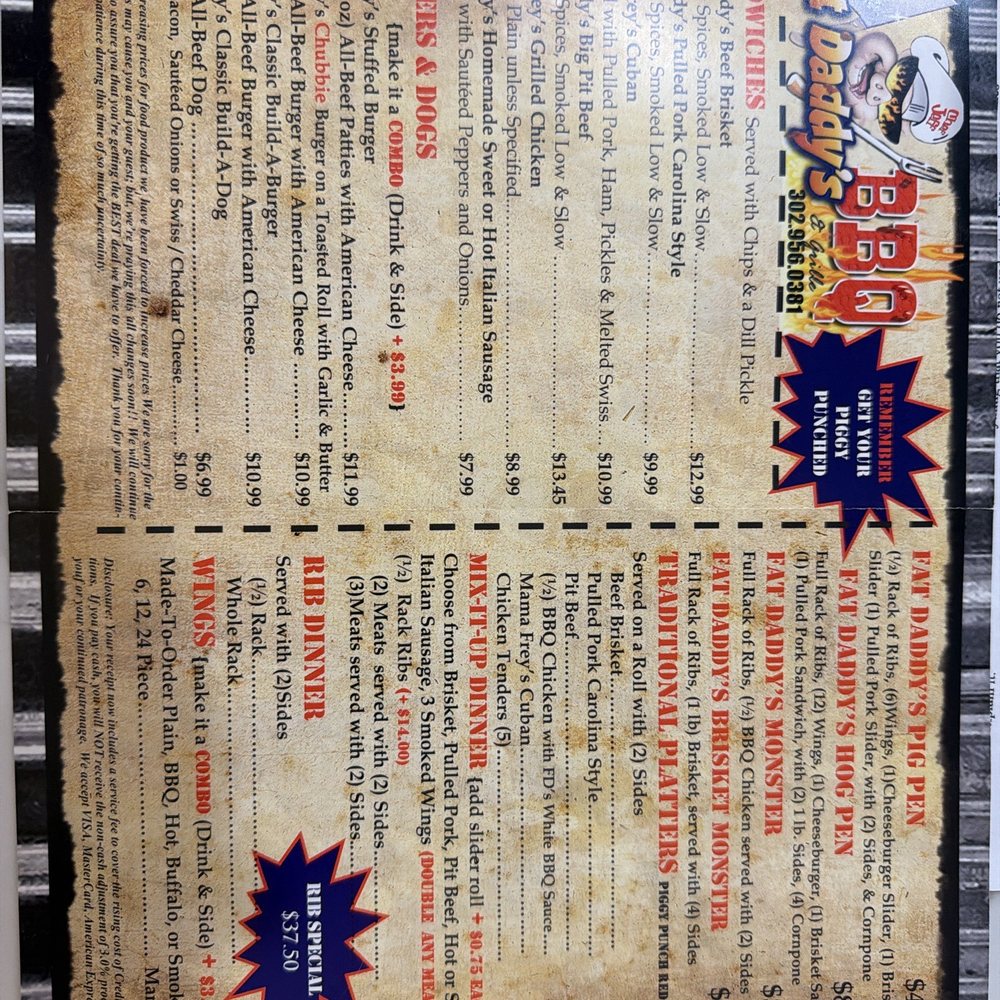 t Daddy's
BBQ
& Grille
302.956.0381
REMEMBER
GET YOUR
PIGGY
PUNCHED
WICHES Served with Chips & a Dill Pickle
dy's Beef Brisket
Spices, Smoked Low & Slow.......... $12.99
dy's Pulled Pork Carolina Style
Spices, Smoked Low & Slow.......... $9.99
rey's Cuban
l with Pulled Pork, Ham, Pickles & Melted Swiss.... $10.99
dy's Big Pit Beef
Spices, Smoked Low & Slow.......... $13.45
ey's Grilled Chicken
Plain unless Specified.......... $8.99
y's Homemade Sweet or Hot Italian Sausage
with Sautéed Peppers and Onions.......... $7.99
ERS & DOGS {make it a COMBO (Drink & Side) + $3.99}
y's Stuffed Burger
oz) All-Beef Patties with American Cheese...... $11.99
y's Chubbie Burger on a Toasted Roll with Garlic & Butter
All-Beef Burger with American Cheese .......... $10.99
y's Classic Build-A-Burger
All-Beef Burger with American Cheese.......... $10.99
y's Classic Build-A-Dog
All-Beef Dog .......... $6.99
acon, Sautéed Onions or Swiss / Cheddar Cheese.......... $1.00
reasing prices for food product we have been forced to increase prices We are sorry for the
s may cause you and your guest; but, we're praying this all changes soon!! We will continue
o assure you that you're getting the BEST deal we have to offer. Thank you for your contin-
patience during this time of so much uncertainty.
FAT DADDY'S PIG PEN $
(½) Rack of Ribs, (6)Wings, (1)Cheeseburger Slider, (1) Bris
Slider (1) Pulled Pork Slider, with (2) Sides, & Cornpone
FAT DADDY'S HOG PEN $
Full Rack of Ribs, (12) Wings, (1) Cheeseburger, (1) Brisket Sa
(1) Pulled Pork Sandwich, with (2) 1 lb. Sides, (4) Cornpone
FAT DADDY'S MONSTER $
Full Rack of Ribs, (½) BBQ Chicken served with (2) Sides
FAT DADDY'S BRISKET MONSTER $
Full Rack of Ribs, (1 lb) Brisket, served with (4) Sides
TRADITIONAL PLATTERS PIGGY PUNCH RED
Served on a Roll with (2) Sides
Beef Brisket..........
Pulled Pork Carolina Style..........
Pit Beef..........
(½) BBQ Chicken with FD's White BBQ Sauce..........
Mama Frey's Cuban..........
Chicken Tenders (5)..........
MIX-IT-UP DINNER {add slider roll + $0.75 EA
Choose from Brisket, Pulled Pork, Pit Beef, Hot or S
Italian Sausage, 3 Smoked Wings (DOUBLE ANY MEA
(½) Rack Ribs (+$14.00)
(2) Meats served with (2) Sides..........
(3)Meats served with (2) Sides..........
RIB DINNER
Served with (2)Sides
(½) Rack..........
Whole Rack..........
RIB SPECIAL
$37.50
WINGS {make it a COMBO (Drink & Side) + $3
Made-To-Order Plain, BBQ, Hot, Buffalo, or Smok
6, 12, 24 Piece.......... Mar
Disclosure: Your receipt now includes a service fee to cover the rising cost of Cred
tions. If you pay cash, you will NOT receive the non-cash adjustment of 3.0% pro
your for your continued patronage. We accept VISA, MasterCard, American Expre